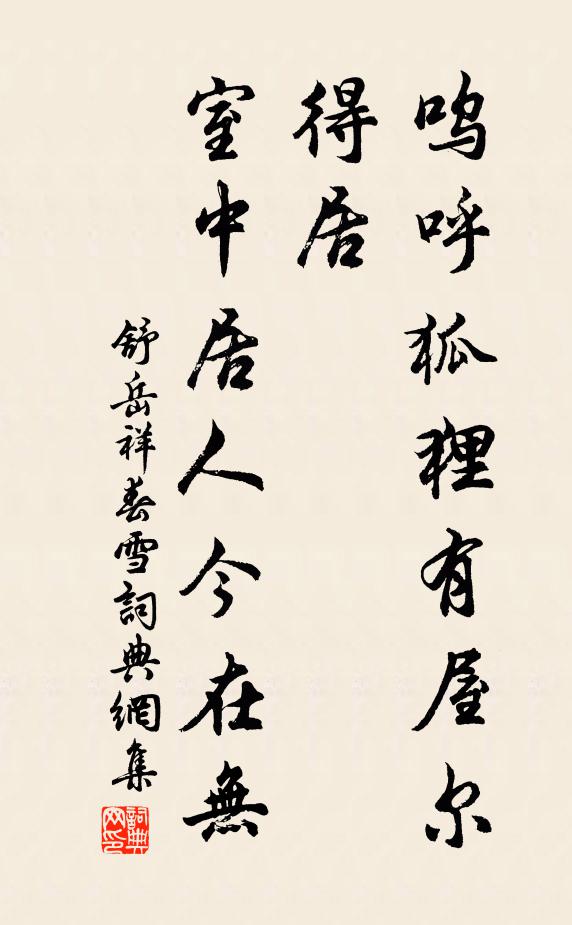 呜呼狐狸有屋尔
得居
室中居人今在無
舒岳祥春雪詞典網集
詞典
网印